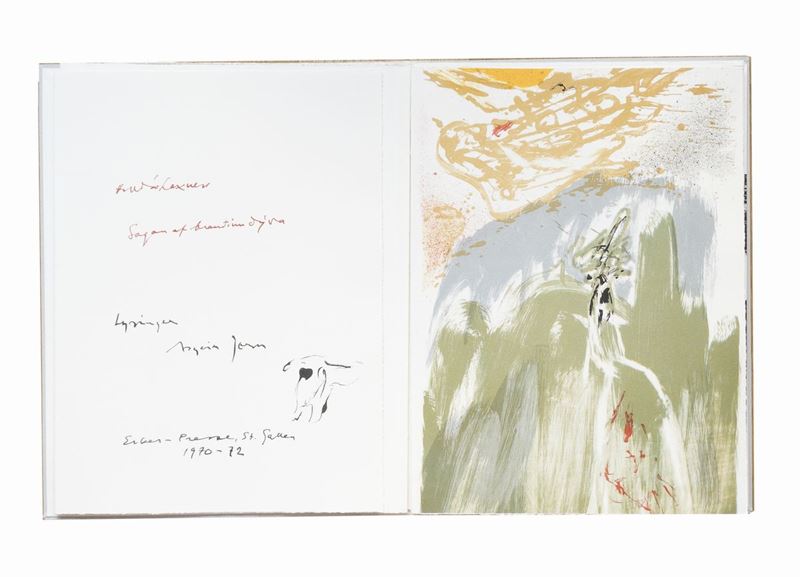 Halldór Laxness
Sagan af brauðinu dýra
Lýsingar
Asger Jorn
Erker-Presse, St. Gallen
1970-72